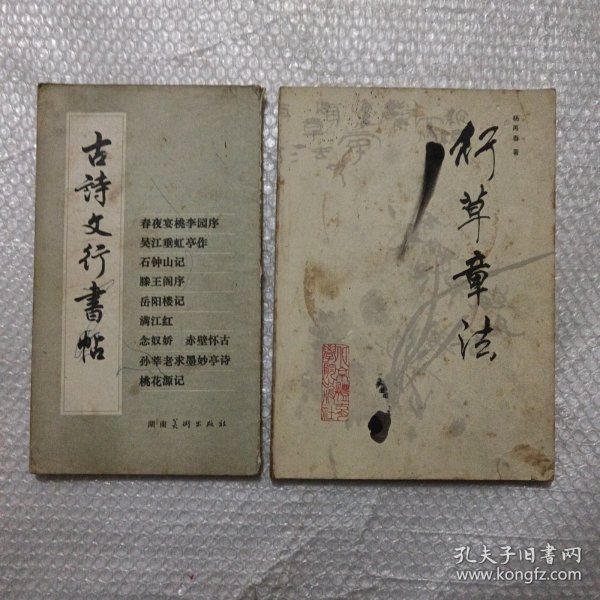 古詩文行書帖
春夜宴桃李园序
吴江垂虹亭作
石钟山记
滕王阁序
岳阳楼记
满江红
念奴娇 赤壁怀古
孙莘老求墨妙亭诗
桃花源记
湖南美術出版社
行草章法
杨再春 著
孔夫子旧書网
www.kongfz.com